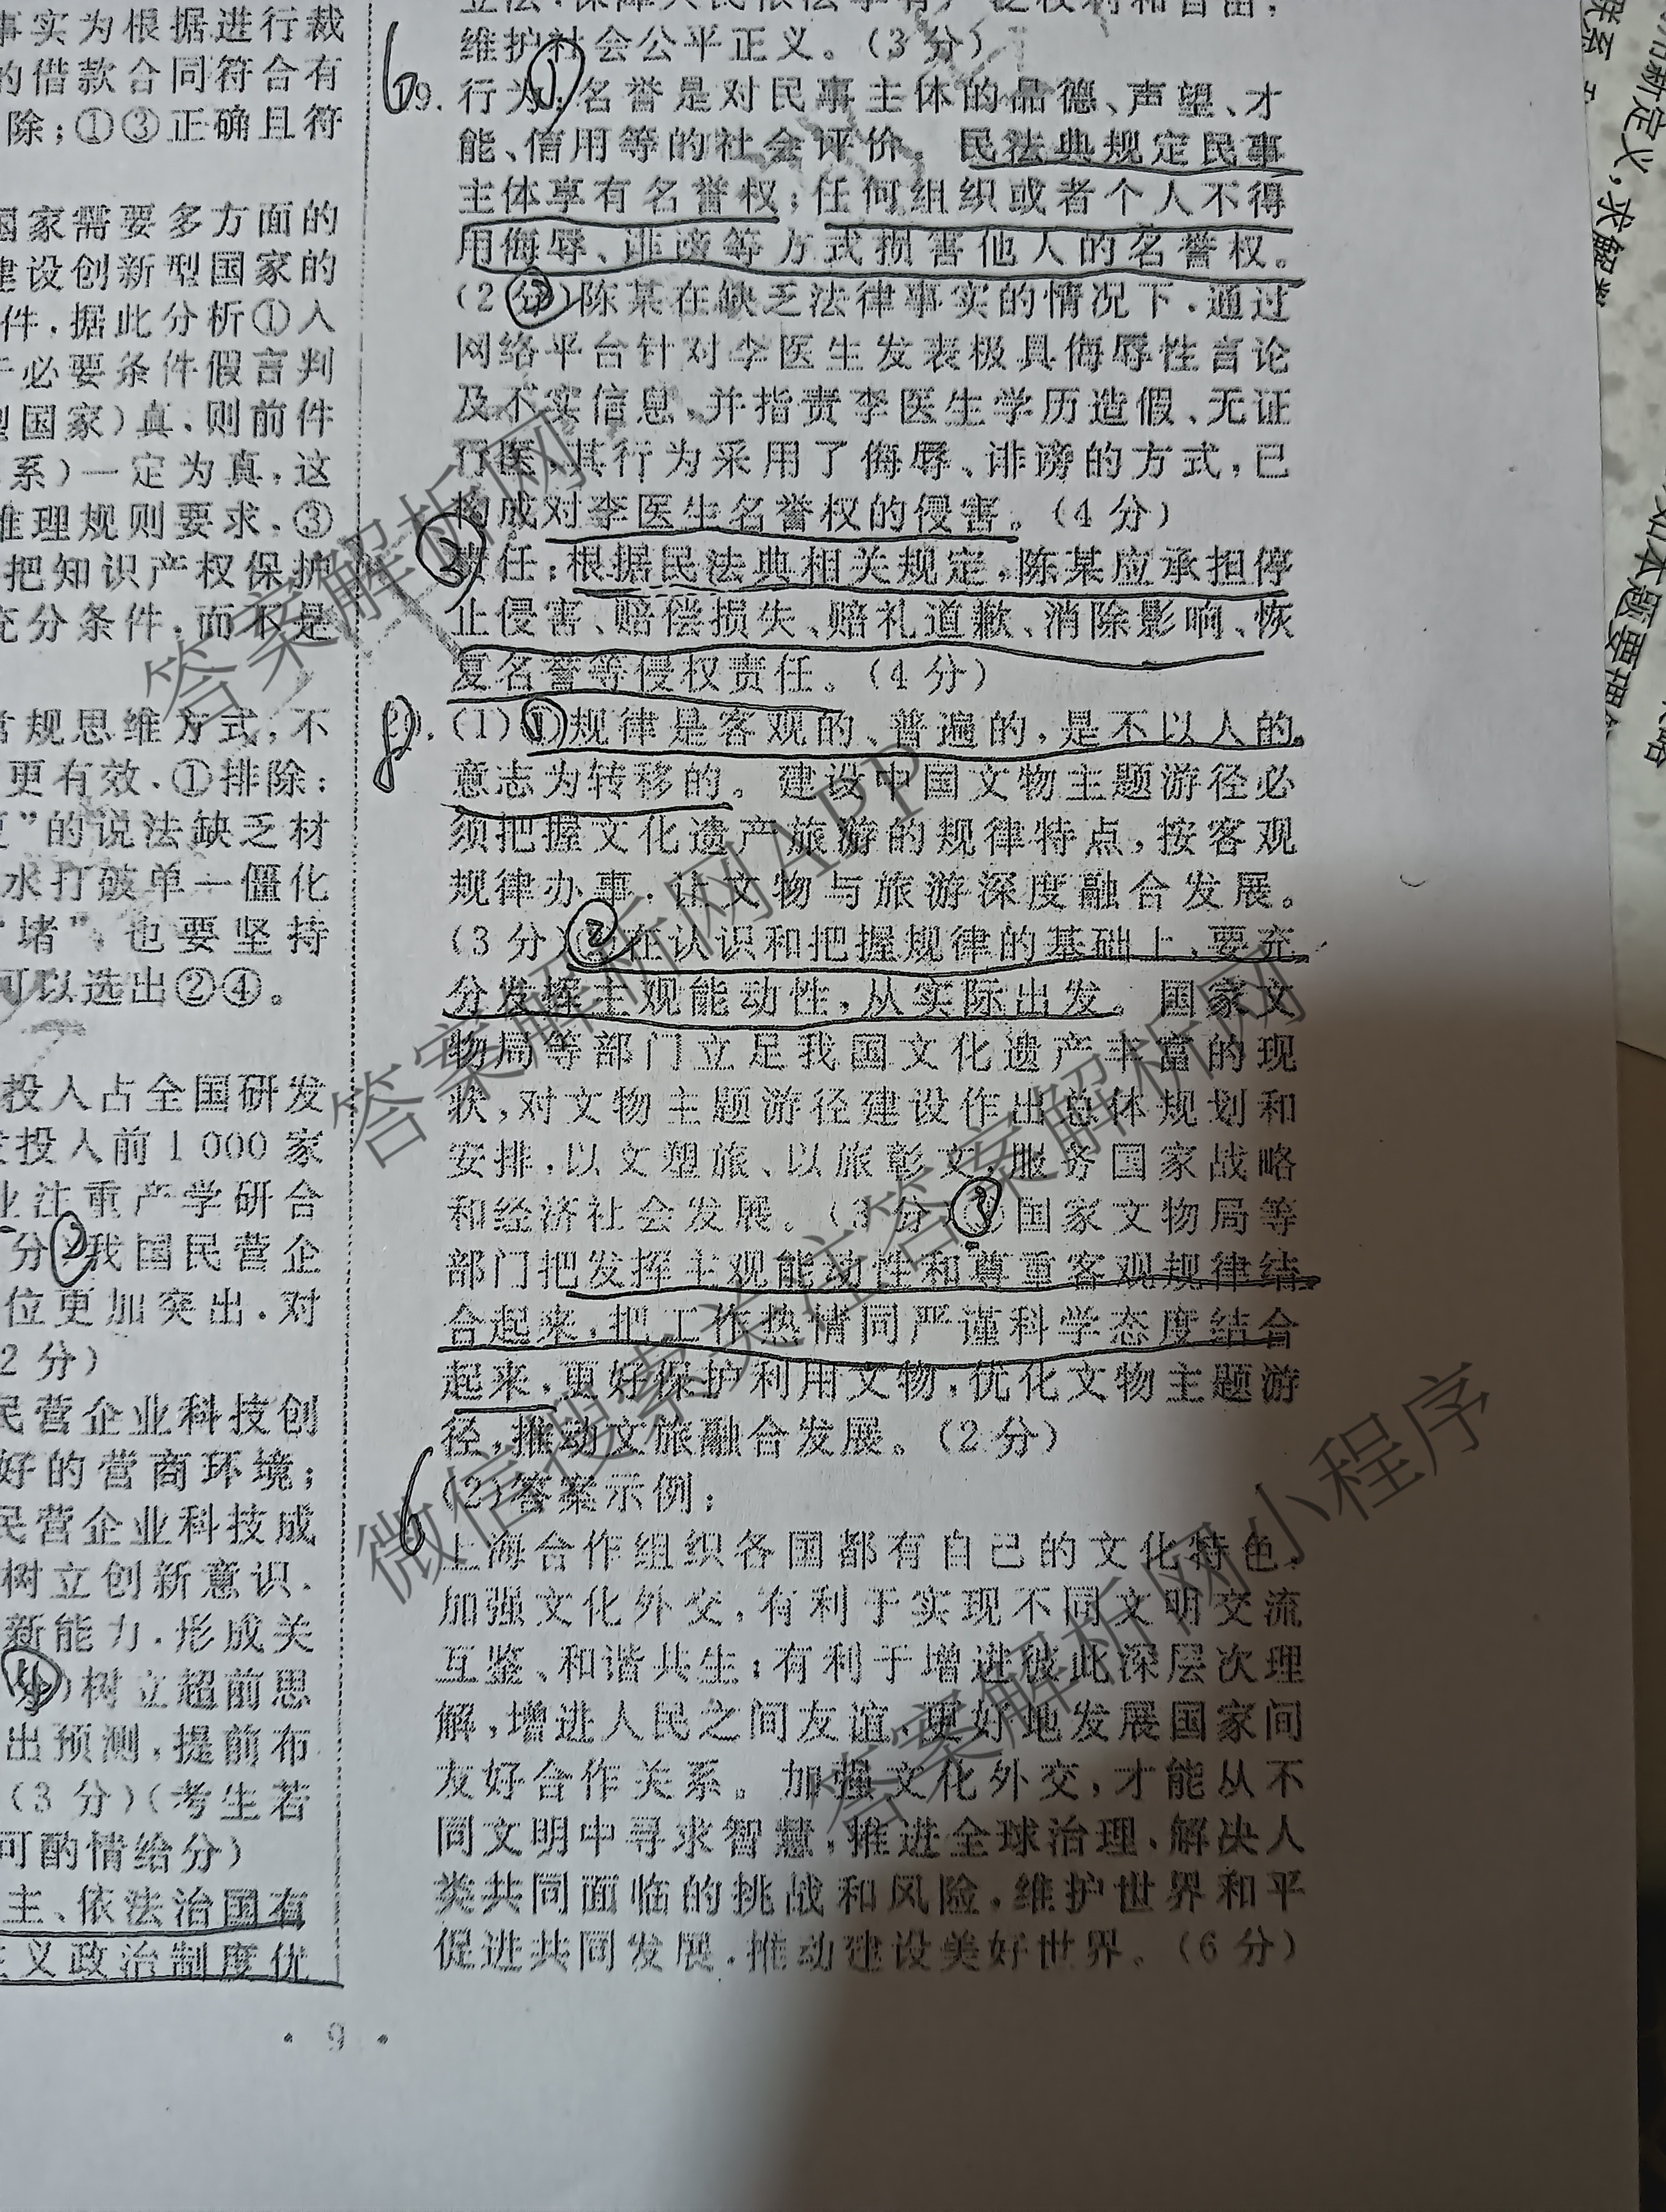 事实为根据进行裁
的借款合同符合有
除；①③正确且符
国家需要多方面的
建设创新型国家的
件，据此分析①入
必要条件假言判
型国家）真，则前件
系）一定为真，这
推理规则要求，③
把知识产权保护
充分条件，而不是
常规思维方式，不
更有效，①排除；
”的说法缺乏材
水打破单一僵化
“堵”，也要坚持
可以选出②④。
投入占全国研发
投入前1000家
业注重产学研合
分）②我国民营企
位更加突出，对
2分）
民营企业科技创
好的营商环境；
民营企业科技成
树立创新意识，
新能力，形成关
④树立超前思
出预测，提前布
（3分）（考生若
可酌情给分）
主、依法治国有
主义政治制度优
· 9 ·
维护社会公平正义。（3分）
6
19. 行为：①名誉是对民事主体的品德、声望、才
能、信用等的社会评价。民法典规定民事
主体享有名誉权；任何组织或者个人不得
用侮辱、诽谤等方式损害他人的名誉权。
（2分）②陈某在缺乏法律事实的情况下，通过
网络平台针对李医生发表极具侮辱性言论
及不实信息，并指责李医生学历造假、无证
行医，其行为采用了侮辱、诽谤的方式，已
构成对李医生名誉权的侵害。（4分）
责任：根据民法典相关规定，陈某应承担停
止侵害、赔偿损失、赔礼道歉、消除影响、恢
复名誉等侵权责任。（4分）
8
20. (1)①规律是客观的、普遍的，是不以人的
意志为转移的。建设中国文物主题游径必
须把握文化遗产旅游的规律特点，按客观
规律办事，让文物与旅游深度融合发展。
（3分）②在认识和把握规律的基础上，要充
分发挥主观能动性，从实际出发。国家文
物局等部门立足我国文化遗产丰富的现
状，对文物主题游径建设作出总体规划和
安排，以文塑旅、以旅彰文，服务国家战略
和经济社会发展。（3分）③国家文物局等
部门把发挥主观能动性和尊重客观规律结
合起来，把工作热情同严谨科学态度结合
起来，更好保护利用文物，优化文物主题游
径，推动文旅融合发展。（2分）
6
(2)答案示例：
上海合作组织各国都有自己的文化特色，
加强文化外交，有利于实现不同文明交流
互鉴、和谐共生；有利于增进彼此深层次理
解，增进人民之间友谊，更好地发展国家间
友好合作关系。加强文化外交，才能从不
同文明中寻求智慧，推进全球治理，解决人
类共同面临的挑战和风险，维护世界和平
促进共同发展，推动建设美好世界。（6分）
新定义，求解类
答案解析网
答案解析网APP
答案解析网
微信搜索关注答案解析网
答案解析网小程序